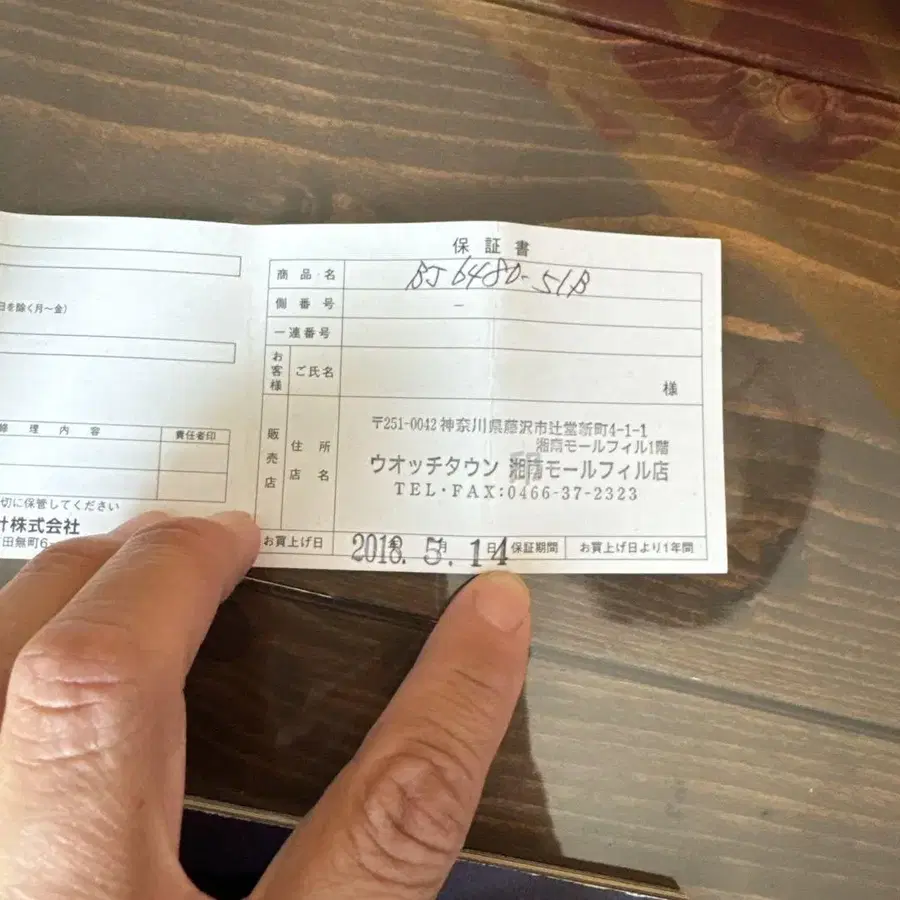 日を除く月～金)
修理内容
責任者印
切に保管してください
計株式会社
田無町6-
保証書
商品名 BJ6480-51B
側番号 －
一連番号
お客様 ご氏名 様
販売店 住所 店名
〒251-0042 神奈川県藤沢市辻堂新町4-1-1
湘南モールフィル1階
ウオッチタウン 湘南モールフィル店
印
TEL・FAX:0466-37-2323
お買上げ日 2018.年 5.月 14日 保証期間 お買上げ日より1年間